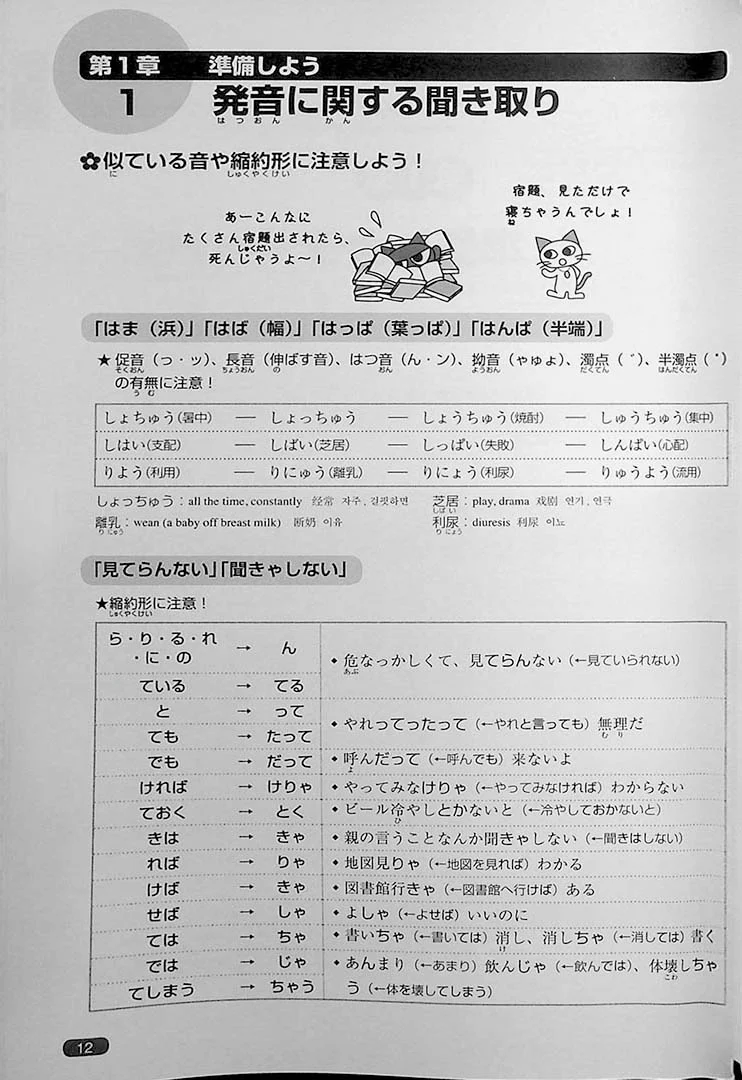 第1章 準備しよう
1 発音に関する聞き取り
はつおん かん
✿似ている音や縮約形に注意しよう！
に しゅくやくけい
宿題、見ただけで
寝ちゃうんでしょ！
ね
あーこんなに
たくさん宿題出されたら、
しゅくだい
死んじゃうよ〜！
「はま（浜）」「はば（幅）」「はっぱ（葉っぱ）」「はんぱ（半端）」
★促音（っ・ッ）、長音（伸ばす音）、はつ音（ん・ン）、拗音（ゃゅょ）、濁点（゛）、半濁点（゜）
そくおん ちょうおん の おん ようおん だくてん はんだくてん
の有無に注意！
うむ
しょちゅう（暑中） ― しょっちゅう ― しょうちゅう（焼酎） ― しゅうちゅう（集中）
しはい（支配） ― しばい（芝居） ― しっぱい（失敗） ― しんぱい（心配）
りよう（利用） ― りにゅう（離乳） ― りにょう（利尿） ― りゅうよう（流用）
しょっちゅう：all the time, constantly 经常 자주, 걸핏하면 芝居：play, drama 戏剧 연기, 연극
しばい
離乳：wean (a baby off breast milk) 断奶 이유 利尿：diuresis 利尿 이뇨
りにゅう りにょう
「見てらんない」「聞きゃしない」
★縮約形に注意！
しゅくやくけい
ら・り・る・れ
・に・の → ん ◆ 危なっかしくて、見てらんない（←見ていられない）
あぶ
ている → てる
と → って
◆ やれってったって（←やれと言っても）無理だ
むり
ても → たって
でも → だって ◆ 呼んだって（←呼んでも）来ないよ
よ
ければ → けりゃ ◆ やってみなけりゃ（←やってみなければ）わからない
ておく → とく ◆ ビール冷やしとかないと（←冷やしておかないと）
ひ
きは → きゃ ◆ 親の言うことなんか聞きゃしない（←聞きはしない）
れば → りゃ ◆ 地図見りゃ（←地図を見れば）わかる
けば → きゃ ◆ 図書館行きゃ（←図書館へ行けば）ある
せば → しゃ ◆ よしゃ（←よせば）いいのに
ては → ちゃ ◆ 書いちゃ（←書いては）消し、消しちゃ（←消しては）書く
け
では → じゃ ◆ あんまり（←あまり）飲んじゃ（←飲んでは）、体壊しちゃ
こわ
てしまう → ちゃう う（←体を壊してしまう）
12